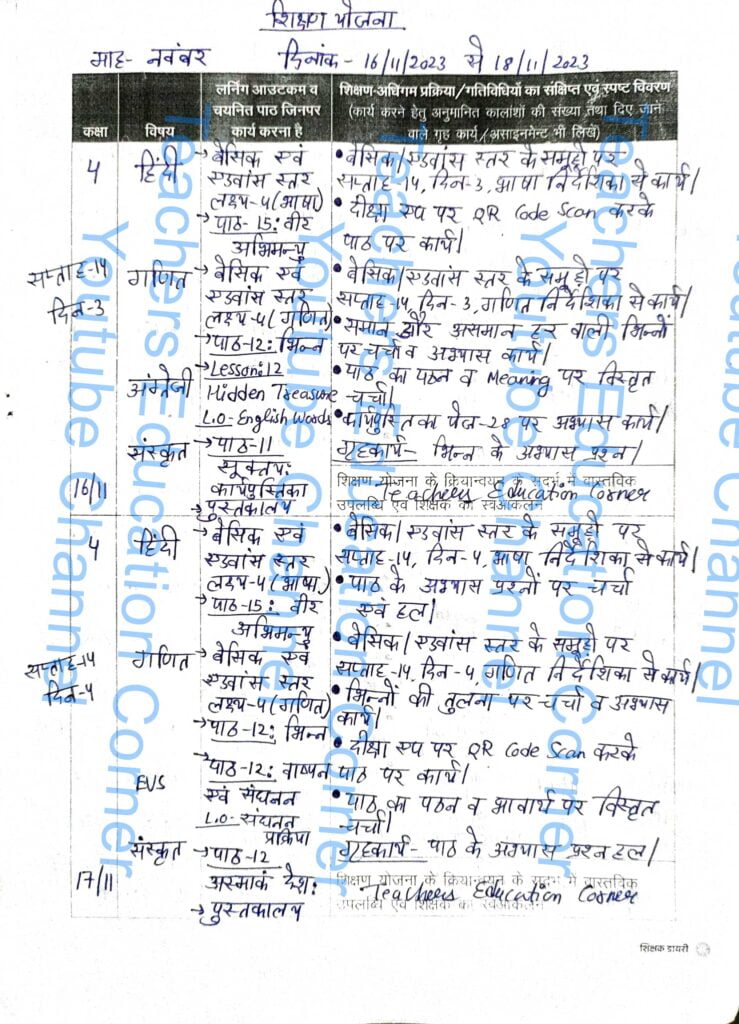 शिक्षण योजना
माह- नवंबर दिनांक - 16/11/2023 से 18/11/2023
कक्षा
विषय
लर्निंग आउटकम व
चयनित पाठ जिनपर
कार्य करना है
शिक्षण-अधिगम प्रक्रिया/गतिविधियों का संक्षिप्त एवं स्पष्ट विवरण
(कार्य करने हेतु अनुमानित कालांशों की संख्या तथा दिए जाने
वाले गृह कार्य/असाइनमेंट भी लिखें)
4
हिंदी
→ बेसिक एवं
एडवांस स्तर
लक्ष्य-4 (भाषा)
→ पाठ-15: वीर
अभिमन्यु
• बेसिक/एडवांस स्तर के समूहों पर
सप्ताह-14, दिन-3, भाषा निर्देशिका से कार्य।
• दीक्षा एप पर QR Code Scan करके
पाठ पर कार्य।
सप्ताह-14
दिन-3
गणित
→ बेसिक एवं
एडवांस स्तर
लक्ष्य-4 (गणित)
→ पाठ-12: भिन्न
• बेसिक/एडवांस स्तर के समूहों पर
सप्ताह-14, दिन-3, गणित निर्देशिका से कार्य।
• समान और असमान हर वाली भिन्नों
पर चर्चा व अभ्यास कार्य।
अंग्रेजी
→ Lesson:12
Hidden Treasure
L.O- English Words
• पाठ का पठन व Meaning पर विस्तृत
चर्चा।
• कार्यपुस्तिका पेज-28 पर अभ्यास कार्य।
संस्कृत
→ पाठ-11
सूक्तयः
कार्यपुस्तिका
→ पुस्तकालय
गृहकार्य- भिन्न के अभ्यास प्रश्न।
16/11
शिक्षण योजना के क्रियान्वयन के संदर्भ में वास्तविक
उपलब्धि एवं शिक्षक का स्वआकलन
Teachers Education Corner
4
हिंदी
→ बेसिक एवं
एडवांस स्तर
लक्ष्य-4 (भाषा)
→ पाठ-15: वीर
अभिमन्यु
• बेसिक/एडवांस स्तर के समूहों पर
सप्ताह-14, दिन-4, भाषा निर्देशिका से कार्य।
• पाठ के अभ्यास प्रश्नों पर चर्चा
एवं हल।
सप्ताह-14
दिन-4
गणित
→ बेसिक एवं
एडवांस स्तर
लक्ष्य-4 (गणित)
→ पाठ-12: भिन्न
• बेसिक/एडवांस स्तर के समूहों पर
सप्ताह-14, दिन-4, गणित निर्देशिका से कार्य।
• भिन्नों की तुलना पर चर्चा व अभ्यास
कार्य।
EVS
→ पाठ-12: वाष्पन
एवं संघनन
L.O- संघनन
प्रक्रिया
• दीक्षा एप पर QR Code Scan करके
पाठ पर कार्य।
• पाठ का पठन व भावार्थ पर विस्तृत
चर्चा।
संस्कृत
→ पाठ-12
अस्माकं देशः
→ पुस्तकालय
गृहकार्य- पाठ के अभ्यास प्रश्न हल।
17/11
शिक्षण योजना के क्रियान्वयन के संदर्भ में वास्तविक
उपलब्धि एवं शिक्षक का स्वआकलन
Teachers Education Corner
शिक्षक डायरी
Teachers Education Corner
Youtube Channel
Teachers Education Corner
Youtube Channel